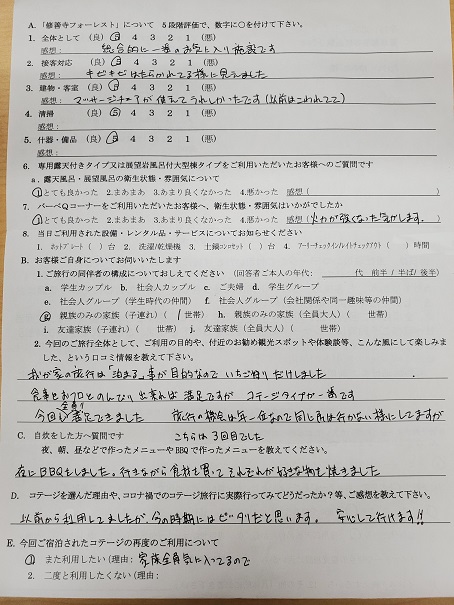 A.「修善寺フォーレスト」について 5段階評価で、数字に○を付けて下さい。
1. 全体として (良) 5 4 3 2 1 (悪)
感想: 総合的に一番のお気に入り施設です
2. 接客対応 (良) 5 4 3 2 1 (悪)
感想: キビキビはたらかれてる様に見えました
3. 建物・客室 (良) 5 4 3 2 1 (悪)
感想: マッサージチェアが使えてうれしかったです(以前はこわれてて)
4. 清掃 (良) 5 4 3 2 1 (悪)
感想:
5. 什器・備品 (良) 5 4 3 2 1 (悪)
感想:
6. 専用露天付きタイプ又は展望岩風呂付大型棟タイプをご利用いただいたお客様へのご質問です
a. 露天風呂・展望風呂の衛生状態・雰囲気について
1.とても良かった 2.まあまあ 3.あまり良くなかった 4.悪かった 感想( )
7. バーベQコーナーをご利用いただいたお客様へ、衛生状態・雰囲気はいかがでしたか
1.とても良かった 2.まあまあ 3.あまり良くなかった 4.悪かった 感想(火力が強くなった気がします。)
8. 当日ご利用された設備・レンタル品・サービスについてお知らせください
1. ホットプレート( )台 2. 洗濯/乾燥機 3. 土鍋コンセット( )台 4. アーリーチェックイン/レイトチェックアウト( )時間
B. お客様ご自身についてお伺いいたします
1. ご旅行の同伴者の構成についておしえてください (回答者ご本人の年代: 代 前半/半ば/後半)
a. 学生カップル b. 社会人カップル c. ご夫婦 d. 学生グループ
e. 社会人グループ(学生時代の仲間) f. 社会人グループ(会社関係や同一趣味等の仲間)
g. 親族のみの家族(子連れ)( 1世帯) h. 親族のみの家族(全員大人)( 世帯)
i. 友達家族(子連れ)( 世帯) j. 友達家族(全員大人)( 世帯)
2. 今回のご旅行全体として、ご利用の目的や、付近のお勧め観光スポットや体験談等、こんな風にして楽しみました、という口コミ情報を教えて下さい。
我が家の旅行は「泊まる」事が目的なのでいちご狩りだけしました
食事とおフロとのんびり出来れば満足ですが コテージタイプが一番です
今回も全員満足できました 旅行の機会は年一位なので同じ所は行かない様にしてますが
こちらは3回目でした
C. 自炊をした方へ質問です
夜、朝、昼などで作ったメニューやBBQで作ったメニューを教えてください。
夜にBBQをしました。行きながら食材を買ってそれぞれが好きな物を焼きました
D. コテージを選んだ理由や、コロナ禍でのコテージ旅行に実際行ってみてどうだったか?等、ご感想を教えて下さい。
以前から利用してましたが、今の時期にはピッタリだと思います。 安心して行けます!!
E. 今回ご宿泊されたコテージの再度のご利用について
1. また利用したい(理由: 家族全員気に入ってるので
2. 二度と利用したくない(理由: